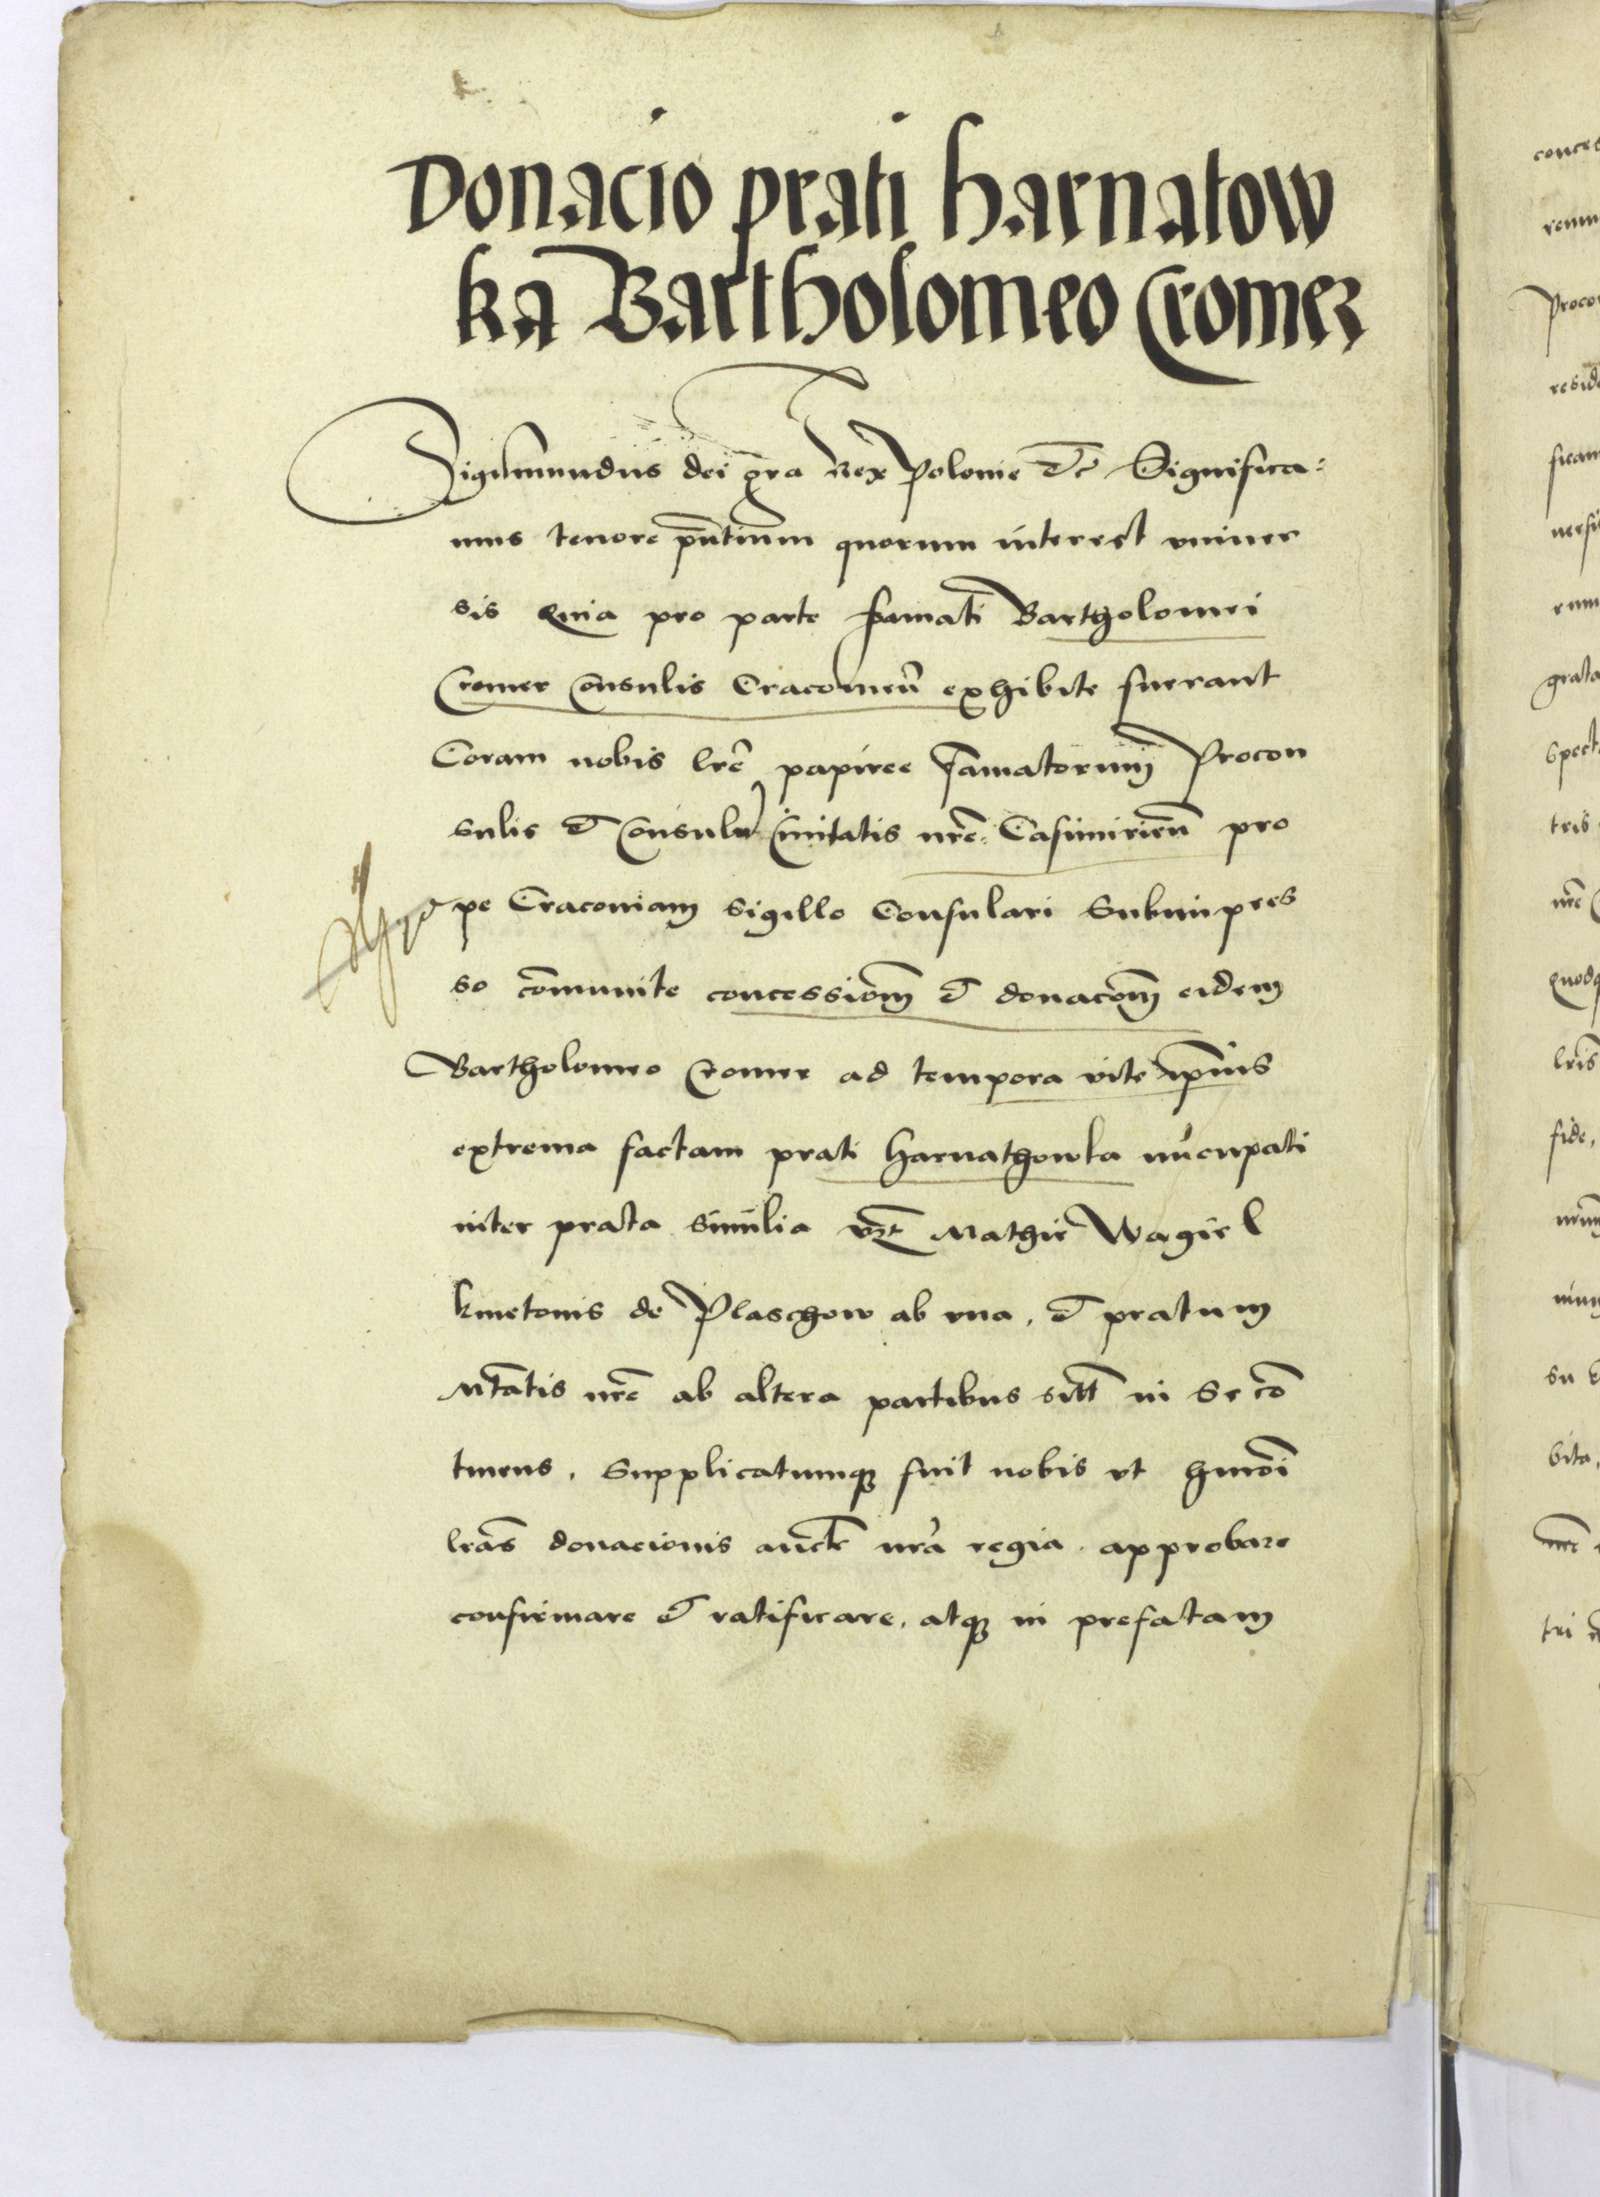 Donacio prati Harnatow
ka Bartholomeo Cromer
Sigismundus dei gra Rex Polonie etc Significa:
mus tenore pntium quorum interest vniuer
sis Quia pro parte famati Bartholomei
Cromer Consulis Cracouien exhibite fuerant
Coram nobis lre papiree famatorum Procon
sulis et Consulum Ciuitatis nre Casimirien pro
pe Cracouiam sigillo Consulari Subimpres
so communite concessionem et donacionem eidem
Bartholomeo Cromer ad tempora vite ipsius
extrema factam prati Harnathowka nucupati
inter prata similia vzt Mathie Wagiel
kmetonis de Plaschow ab vna, et pratum
Mtatis nre ab altera partibus sitt in Se co
tinens, Supplicatumque fuit nobis vt hmoi
lras donacionis aucte nra regia approbare
confirmare et ratificare, atque in prefatam